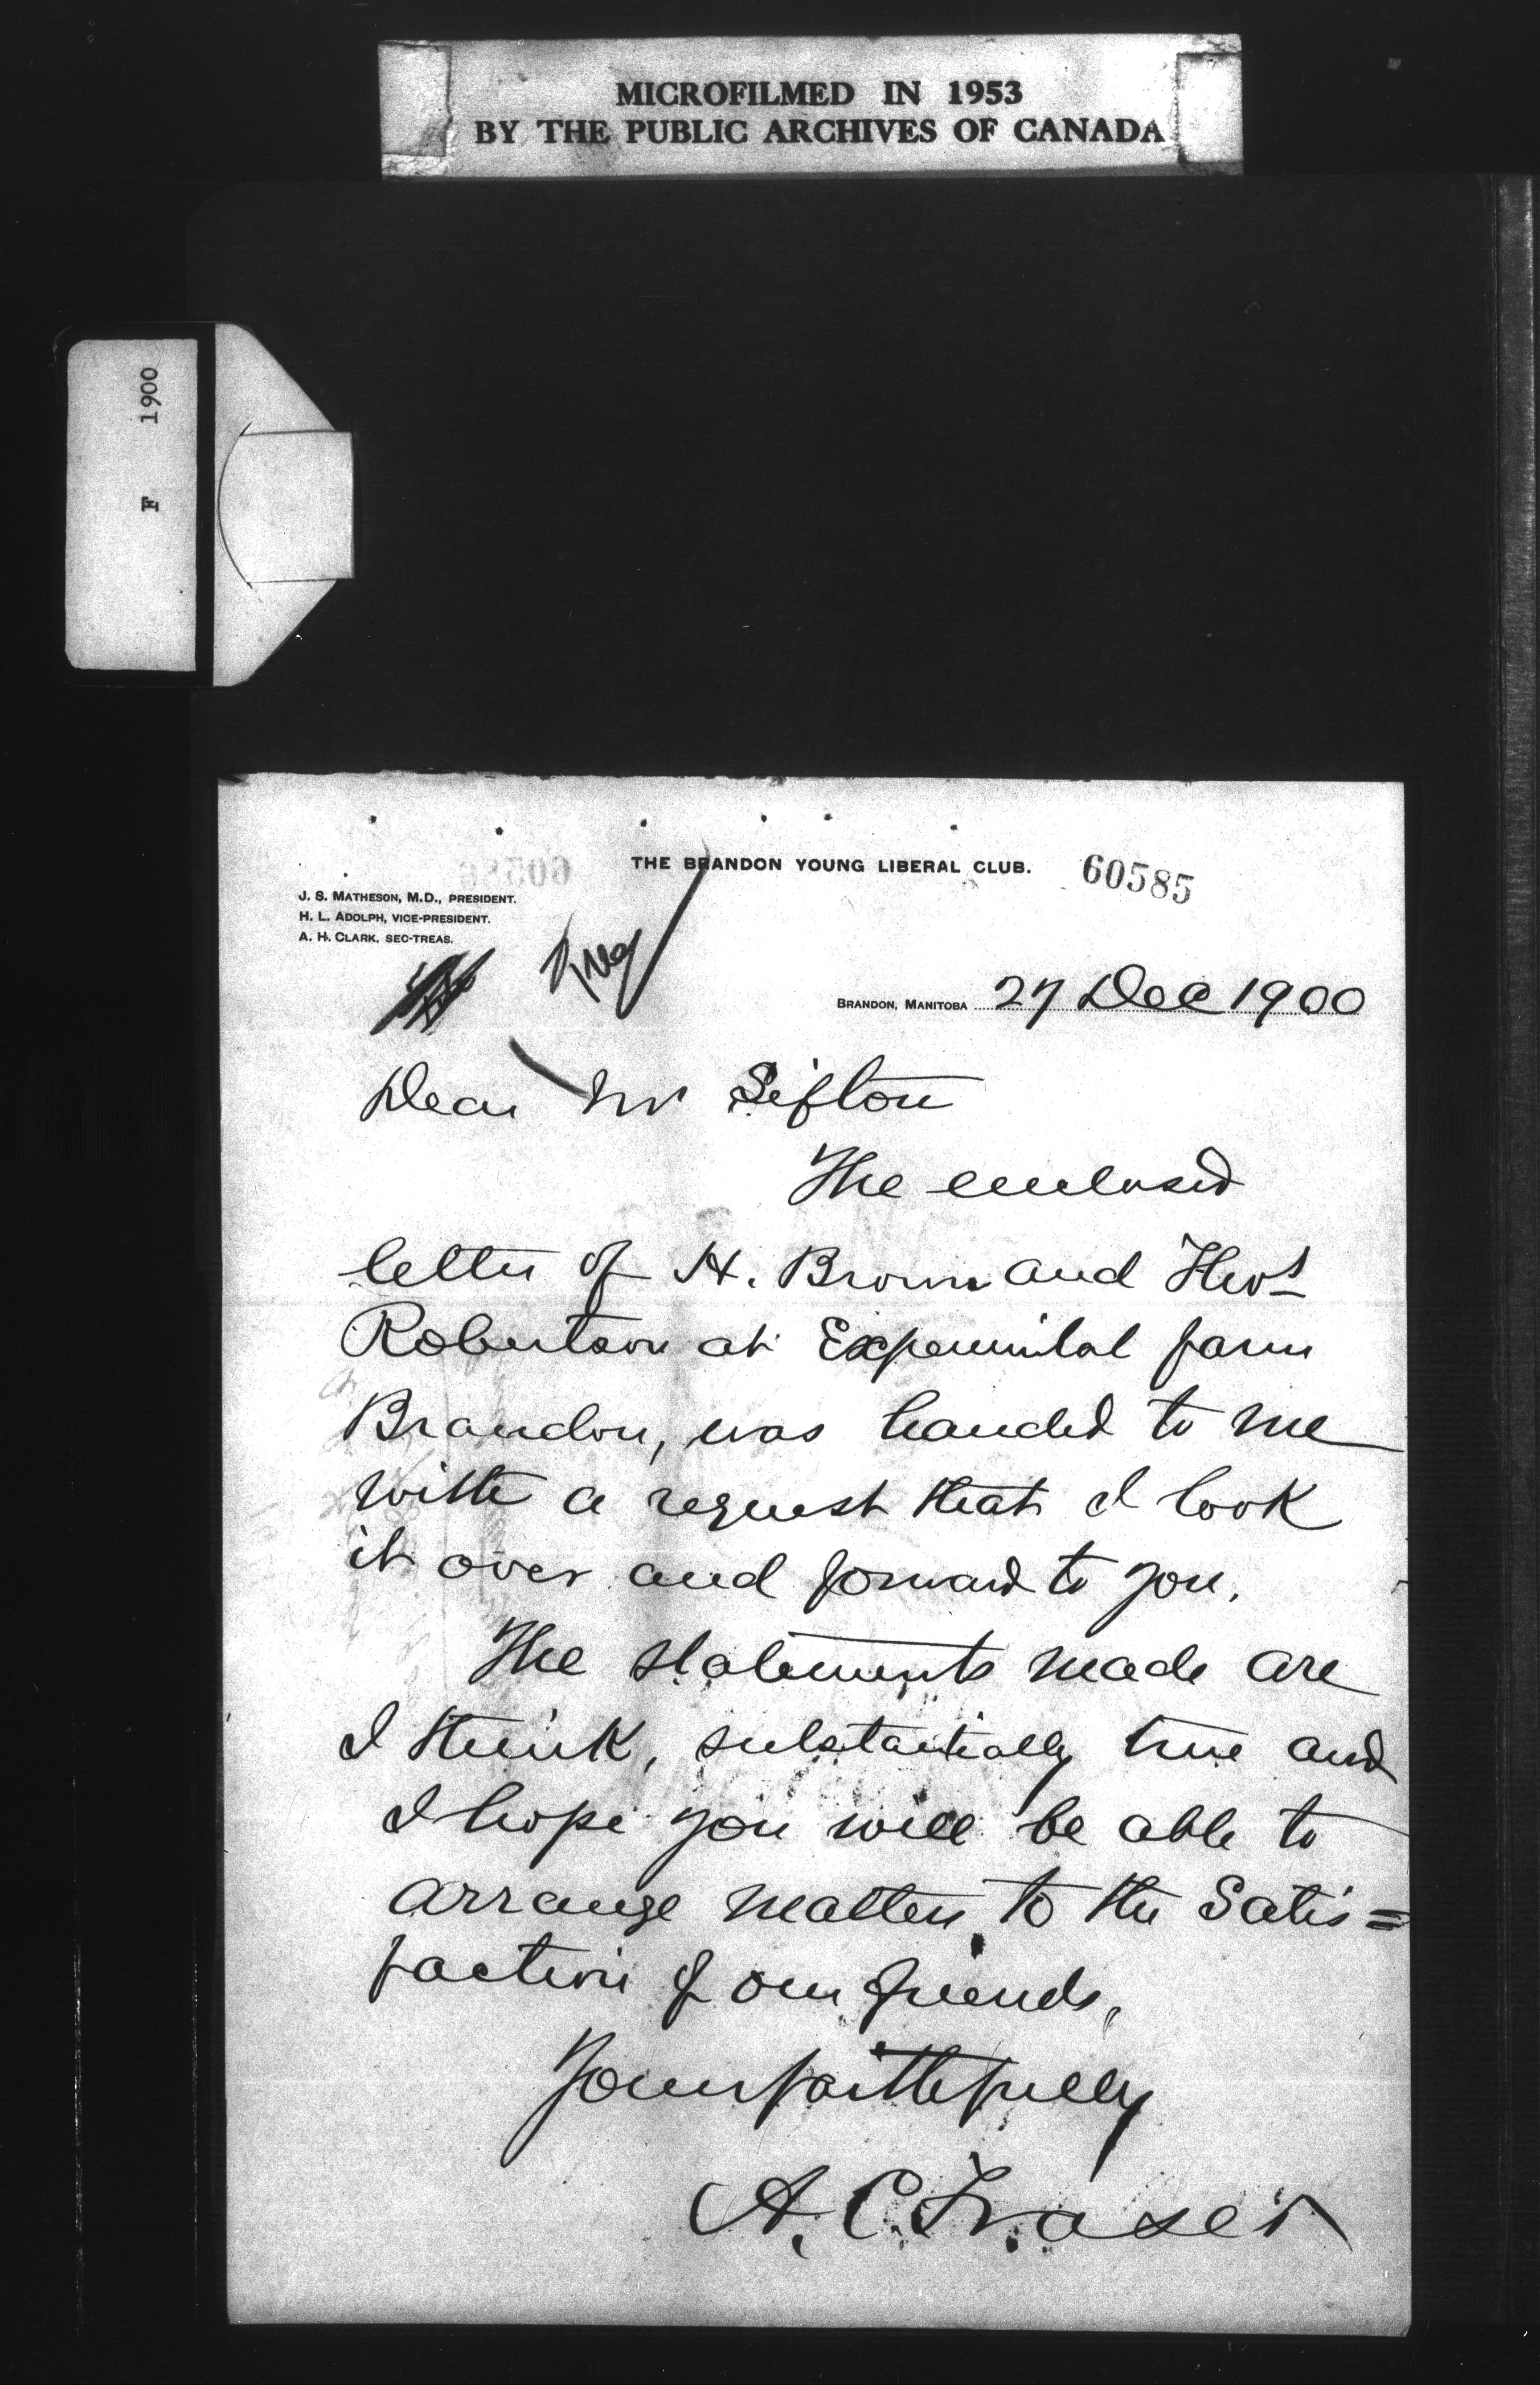 MICROFILMED IN 1953
BY THE PUBLIC ARCHIVES OF CANADA
F 1900
THE BRANDON YOUNG LIBERAL CLUB.
60585
J. S. MATHESON, M.D., PRESIDENT.
H. L. ADOLPH, VICE-PRESIDENT.
A. H. CLARK, SEC-TREAS.
BRANDON, MANITOBA 27 Dec 1900
Dear Mr Sifton
The enclosed
letter of H. Brown and Thos
Robertson at Experimental farm
Brandon, was handed to me
with a request that I look
it over and forward to you.
The statements made are
I think, substantially true and
I hope you will be able to
arrange matters to the Satis=
faction of our friends,
Yours faithfully
A. C. Fraser